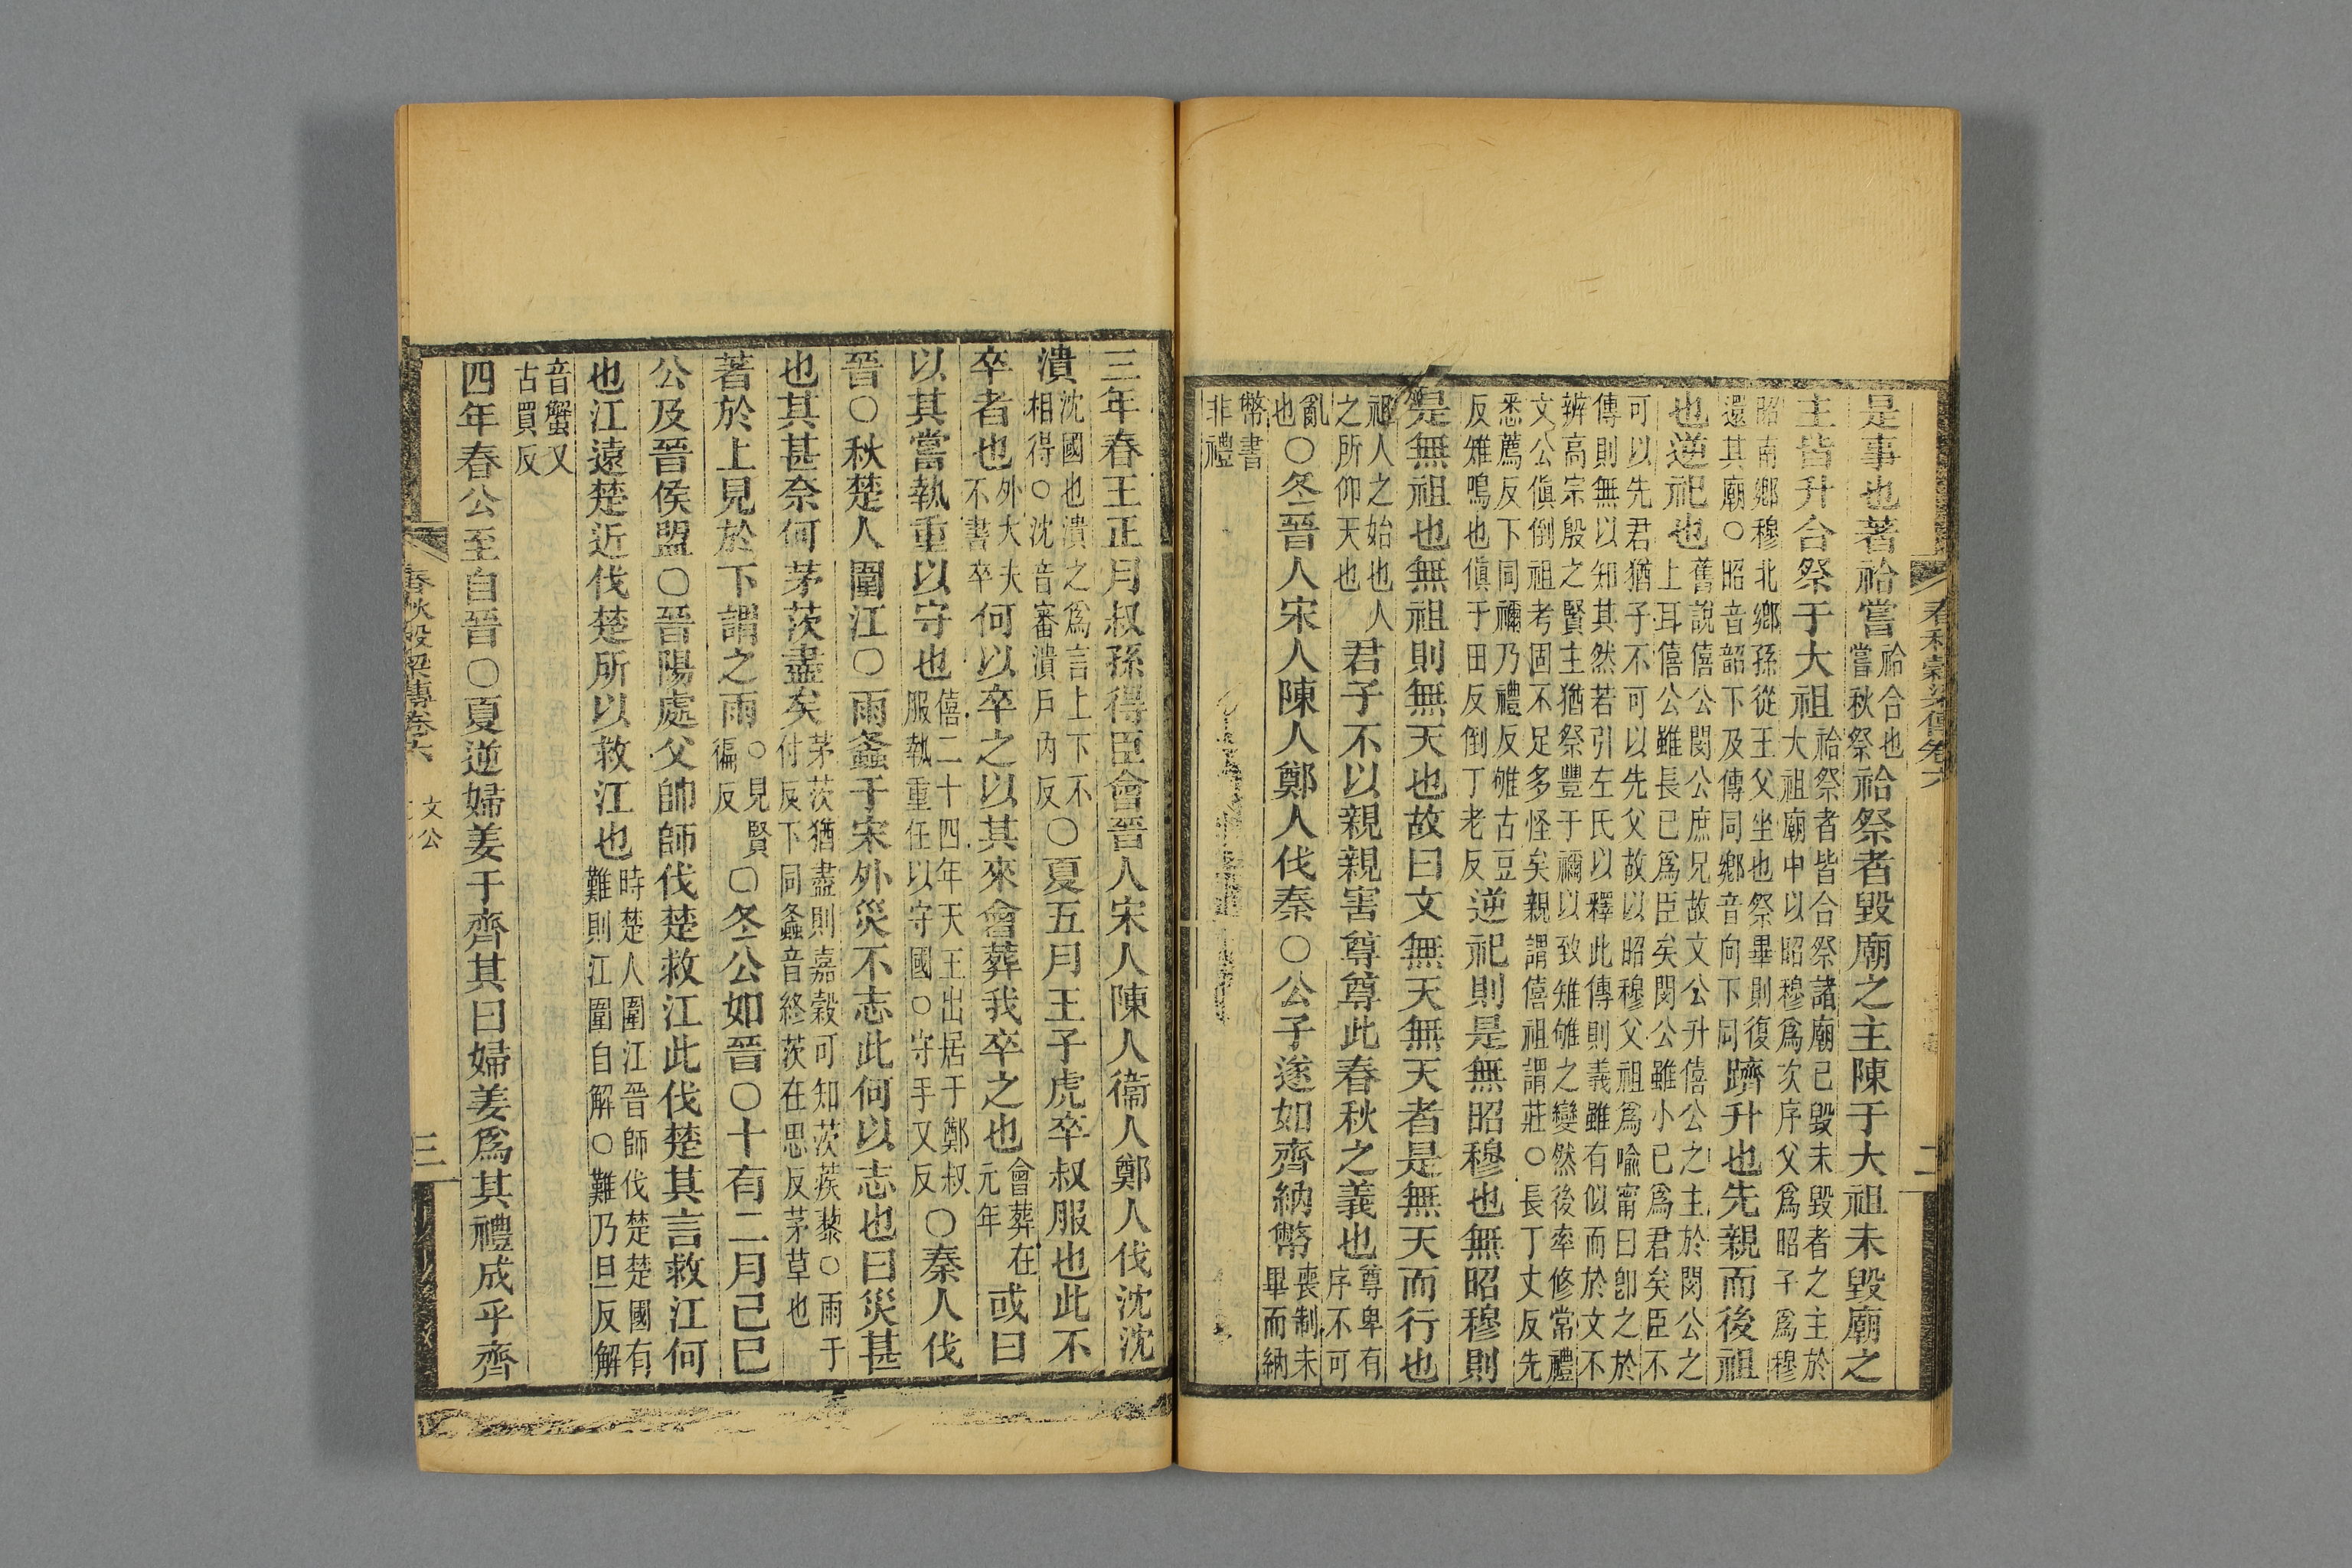 春秋穀梁傳卷六 二
是事也著祫嘗祫合也嘗秋祭祫祭者毀廟之主陳于大祖未毀廟之
主皆升合祭于大祖祫祭者皆合祭諸廟已毀未毀者之主於大祖廟中以昭穆爲次序父爲昭子爲穆
昭南鄉穆北鄉孫從王父坐也祭畢則復還其廟○昭音韶下及傳同鄉音向下同躋升也先親而後祖
也逆祀也舊說僖公閔公庶兄故文公升僖公之主於閔公之上耳僖公雖長已爲臣矣閔公雖小已爲君矣臣不
可以先君猶子不可以先父故以昭穆父祖爲喻甯曰卽之於傳則無以知其然若引左氏以釋此傳則義雖有似而於文不
辨高宗殷之賢主猶祭豐于禰以致雉雊之變然後率修常禮文公傎倒祖考固不足多怪矣親謂僖祖謂莊○長丁丈反先
悉薦反下同禰乃禮反雊古豆反雉鳴也傎于田反倒丁老反逆祀則是無昭穆也無昭穆則
是無祖也無祖則無天也故曰文無天無天者是無天而行也
祖人之始也人之所仰天也君子不以親親害尊尊此春秋之義也尊卑有序不可
亂也○冬晉人宋人陳人鄭人伐秦○公子遂如齊納幣喪制未畢而納
幣書非禮
三年春王正月叔孫得臣會晉人宋人陳人衞人鄭人伐沈沈
潰沈國也潰之爲言上下不相得○沈音審潰戶內反○夏五月王子虎卒叔服也此不
卒者也外大夫不書卒何以卒之以其來會葬我卒之也會葬在元年或曰
以其嘗執重以守也僖二十四年天王出居于鄭叔服執重任以守國○守手又反○秦人伐
晉○秋楚人圍江○雨螽于宋外災不志此何以志也曰災甚
也其甚奈何茅茨盡矣茅茨猶盡則嘉穀可知茨蒺藜○雨于付反下同螽音終茨在思反茅草也
著於上見於下謂之雨○見賢徧反○冬公如晉○十有二月己巳
公及晉侯盟○晉陽處父帥師伐楚救江此伐楚其言救江何
也江遠楚近伐楚所以救江也時楚人圍江晉師伐楚楚國有難則江圍自解○難乃旦反解
音蟹又古買反
四年春公至自晉○夏逆婦姜于齊其曰婦姜爲其禮成乎齊
春秋穀梁傳卷六 文公 三